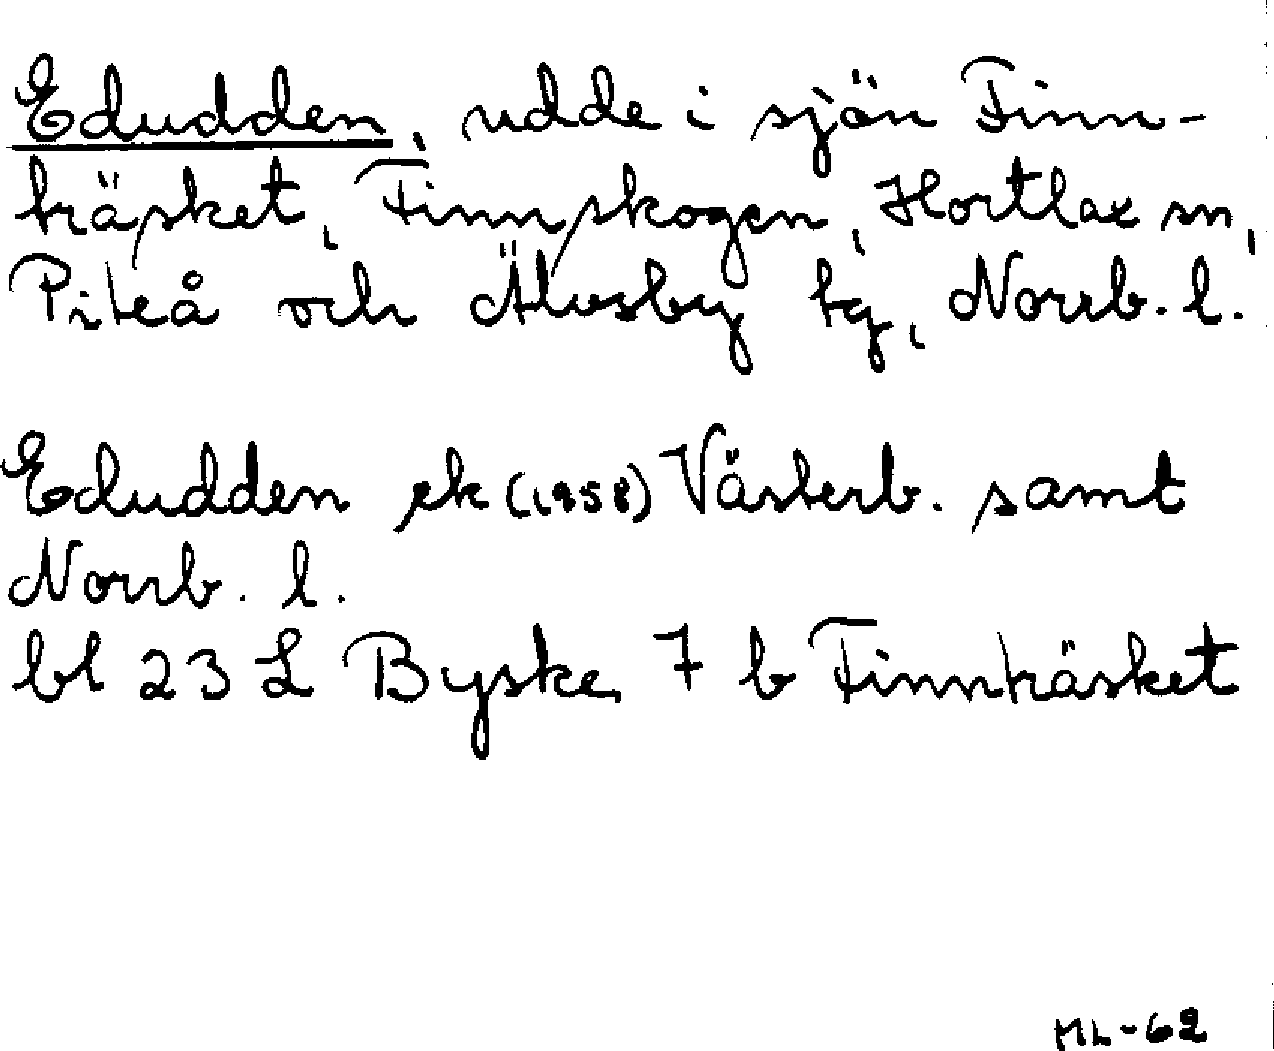 Edudden, udde i sjön Finn-
träsket, Finnskogen, Hortlax sn,
Piteå och Älvsby tg, Norrb. l.
Edudden ek (1958) Västerb. samt
Norrb. l.
bl 23 L Byske, 7 b Finnträsket
ML-62